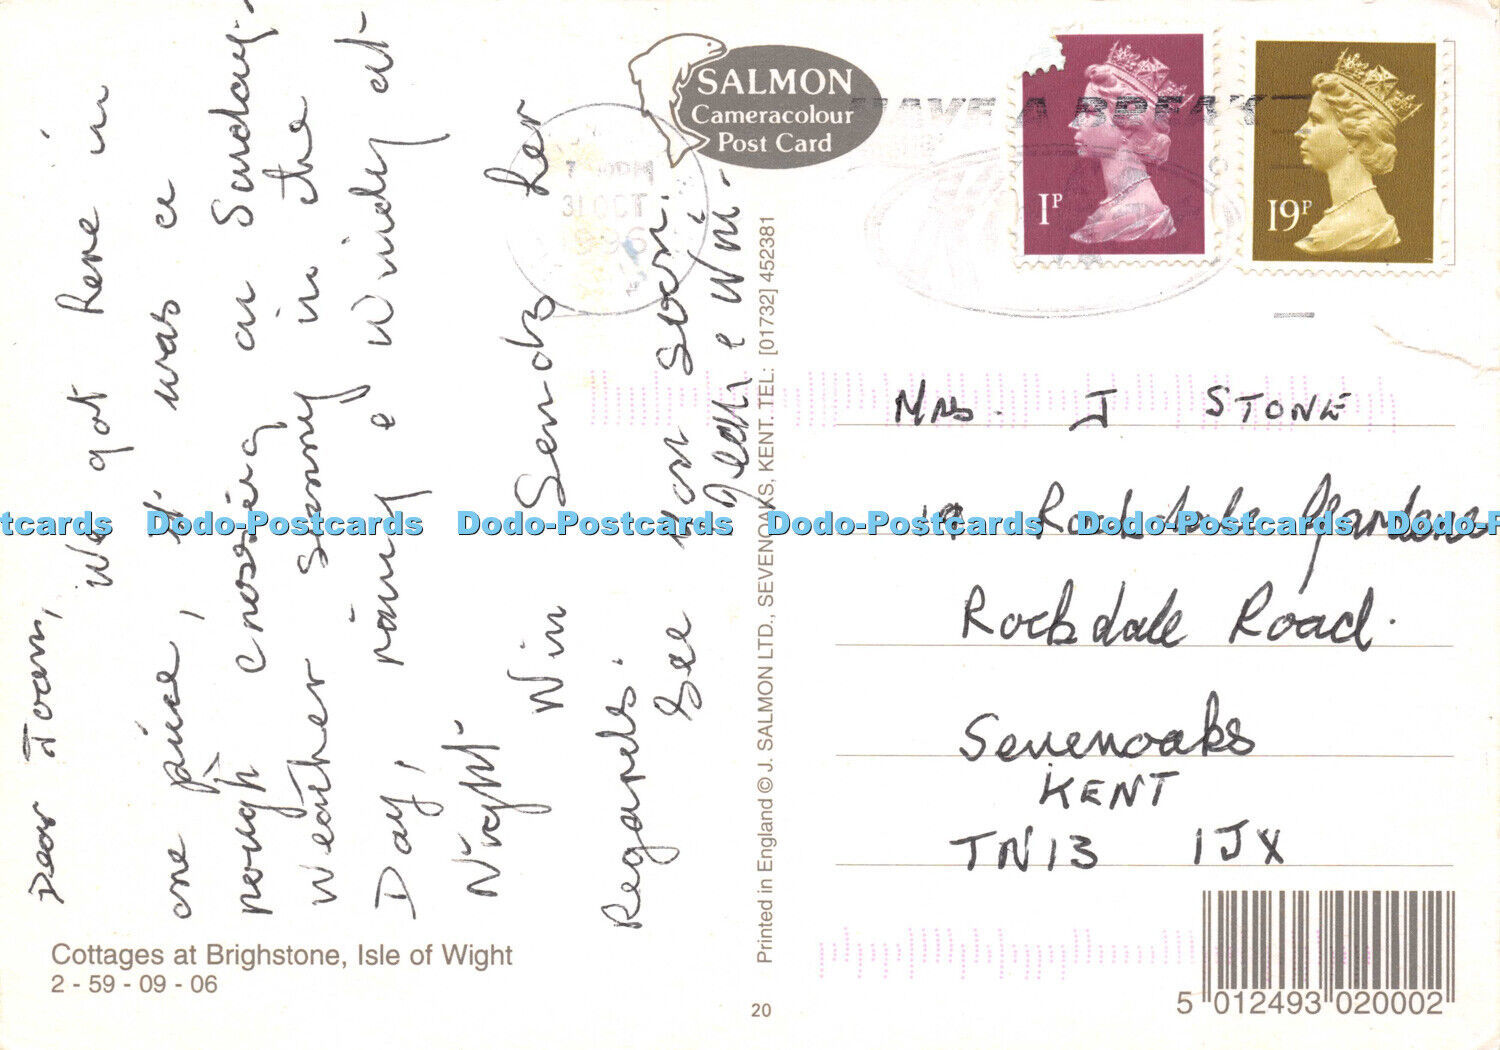 Dear Joan,
We got here in
one piece, it was a
rough crossing on Sunday.
Weather sunny in the
Day, rainy & windy at
Night
Win sends her
Regards.
See you soon.
& Win.
SALMON
Cameracolour
Post Card
HAVE A BREAK
31 OCT
1996
1P
19P
Printed in England © J. SALMON LTD., SEVENOAKS, KENT. TEL: [01732] 452381
Mrs. J STONE
Rockdale Gardens
Rockdale Road.
Sevenoaks
KENT
TN13 1JX
Cottages at Brighstone, Isle of Wight
2 - 59 - 09 - 06
20
5 012493 020002
tcards Dodo-Postcards Dodo-Postcards Dodo-Postcards Dodo-Postcards Dodo-P